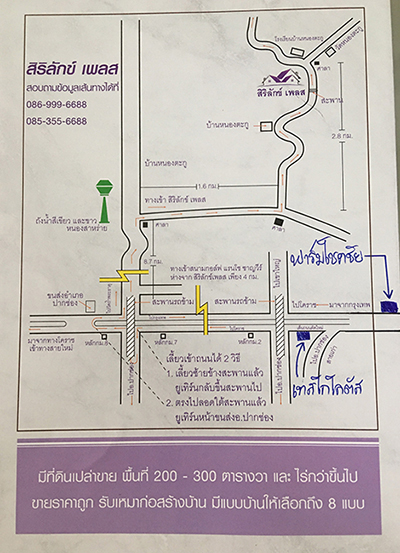 สิริลักข์ เพลส
สอบถามข้อมูลเส้นทางได้ที่
086-999-6688
085-355-6688
โรงเรียนบ้านหนองตะกู
วัดหนองตะกู
ศาลา
สิริลักข์ เพลส
สะพาน
บ้านหนองตะกู
2.8 กม.
บ้านหนองตะกู
1.6 กม.
ทางเข้า สิริลักข์ เพลส
ถังน้ำสีเขียว และขาว
หนองสาหร่าย
ศาลา
ศาลา
8.7 กม.
ทางเข้าสนามกอล์ฟ แรนโช ชาญวีร์
ห่างจาก สิริลักข์เพลส เพียง 4 กม.
ฟาร์มโชคชัย
ไปเขาใหญ่
ขนส่งอำเภอ
ปากช่อง
สะพานรถข้าม
สะพานรถข้าม
ไปโคราช
มาจากกรุงเทพ
มาจากทางโคราช
เข้าทางสายใหม่
หลักกม.6
หลักกม.7
หลักกม.2
ไปอ.ปากช่อง
ไปอ.ปากช่อง
ไปอ.ปากช่อง
เทสโก้โลตัส
เลี้ยวเข้าถนนได้ 2 วิธี
1. เลี้ยวซ้ายข้างสะพานแล้ว
ยูเทิร์นกลับขึ้นสะพานไป
2. ตรงไปลอดใต้สะพานแล้ว
ยูเทิร์นหน้าขนส่งอ.ปากช่อง
มีที่ดินเปล่าขาย พื้นที่ 200 - 300 ตารางวา และ ไร่กว่าขึ้นไป
ขายราคาถูก รับเหมาก่อสร้างบ้าน มีแบบบ้านให้เลือกถึง 8 แบบ